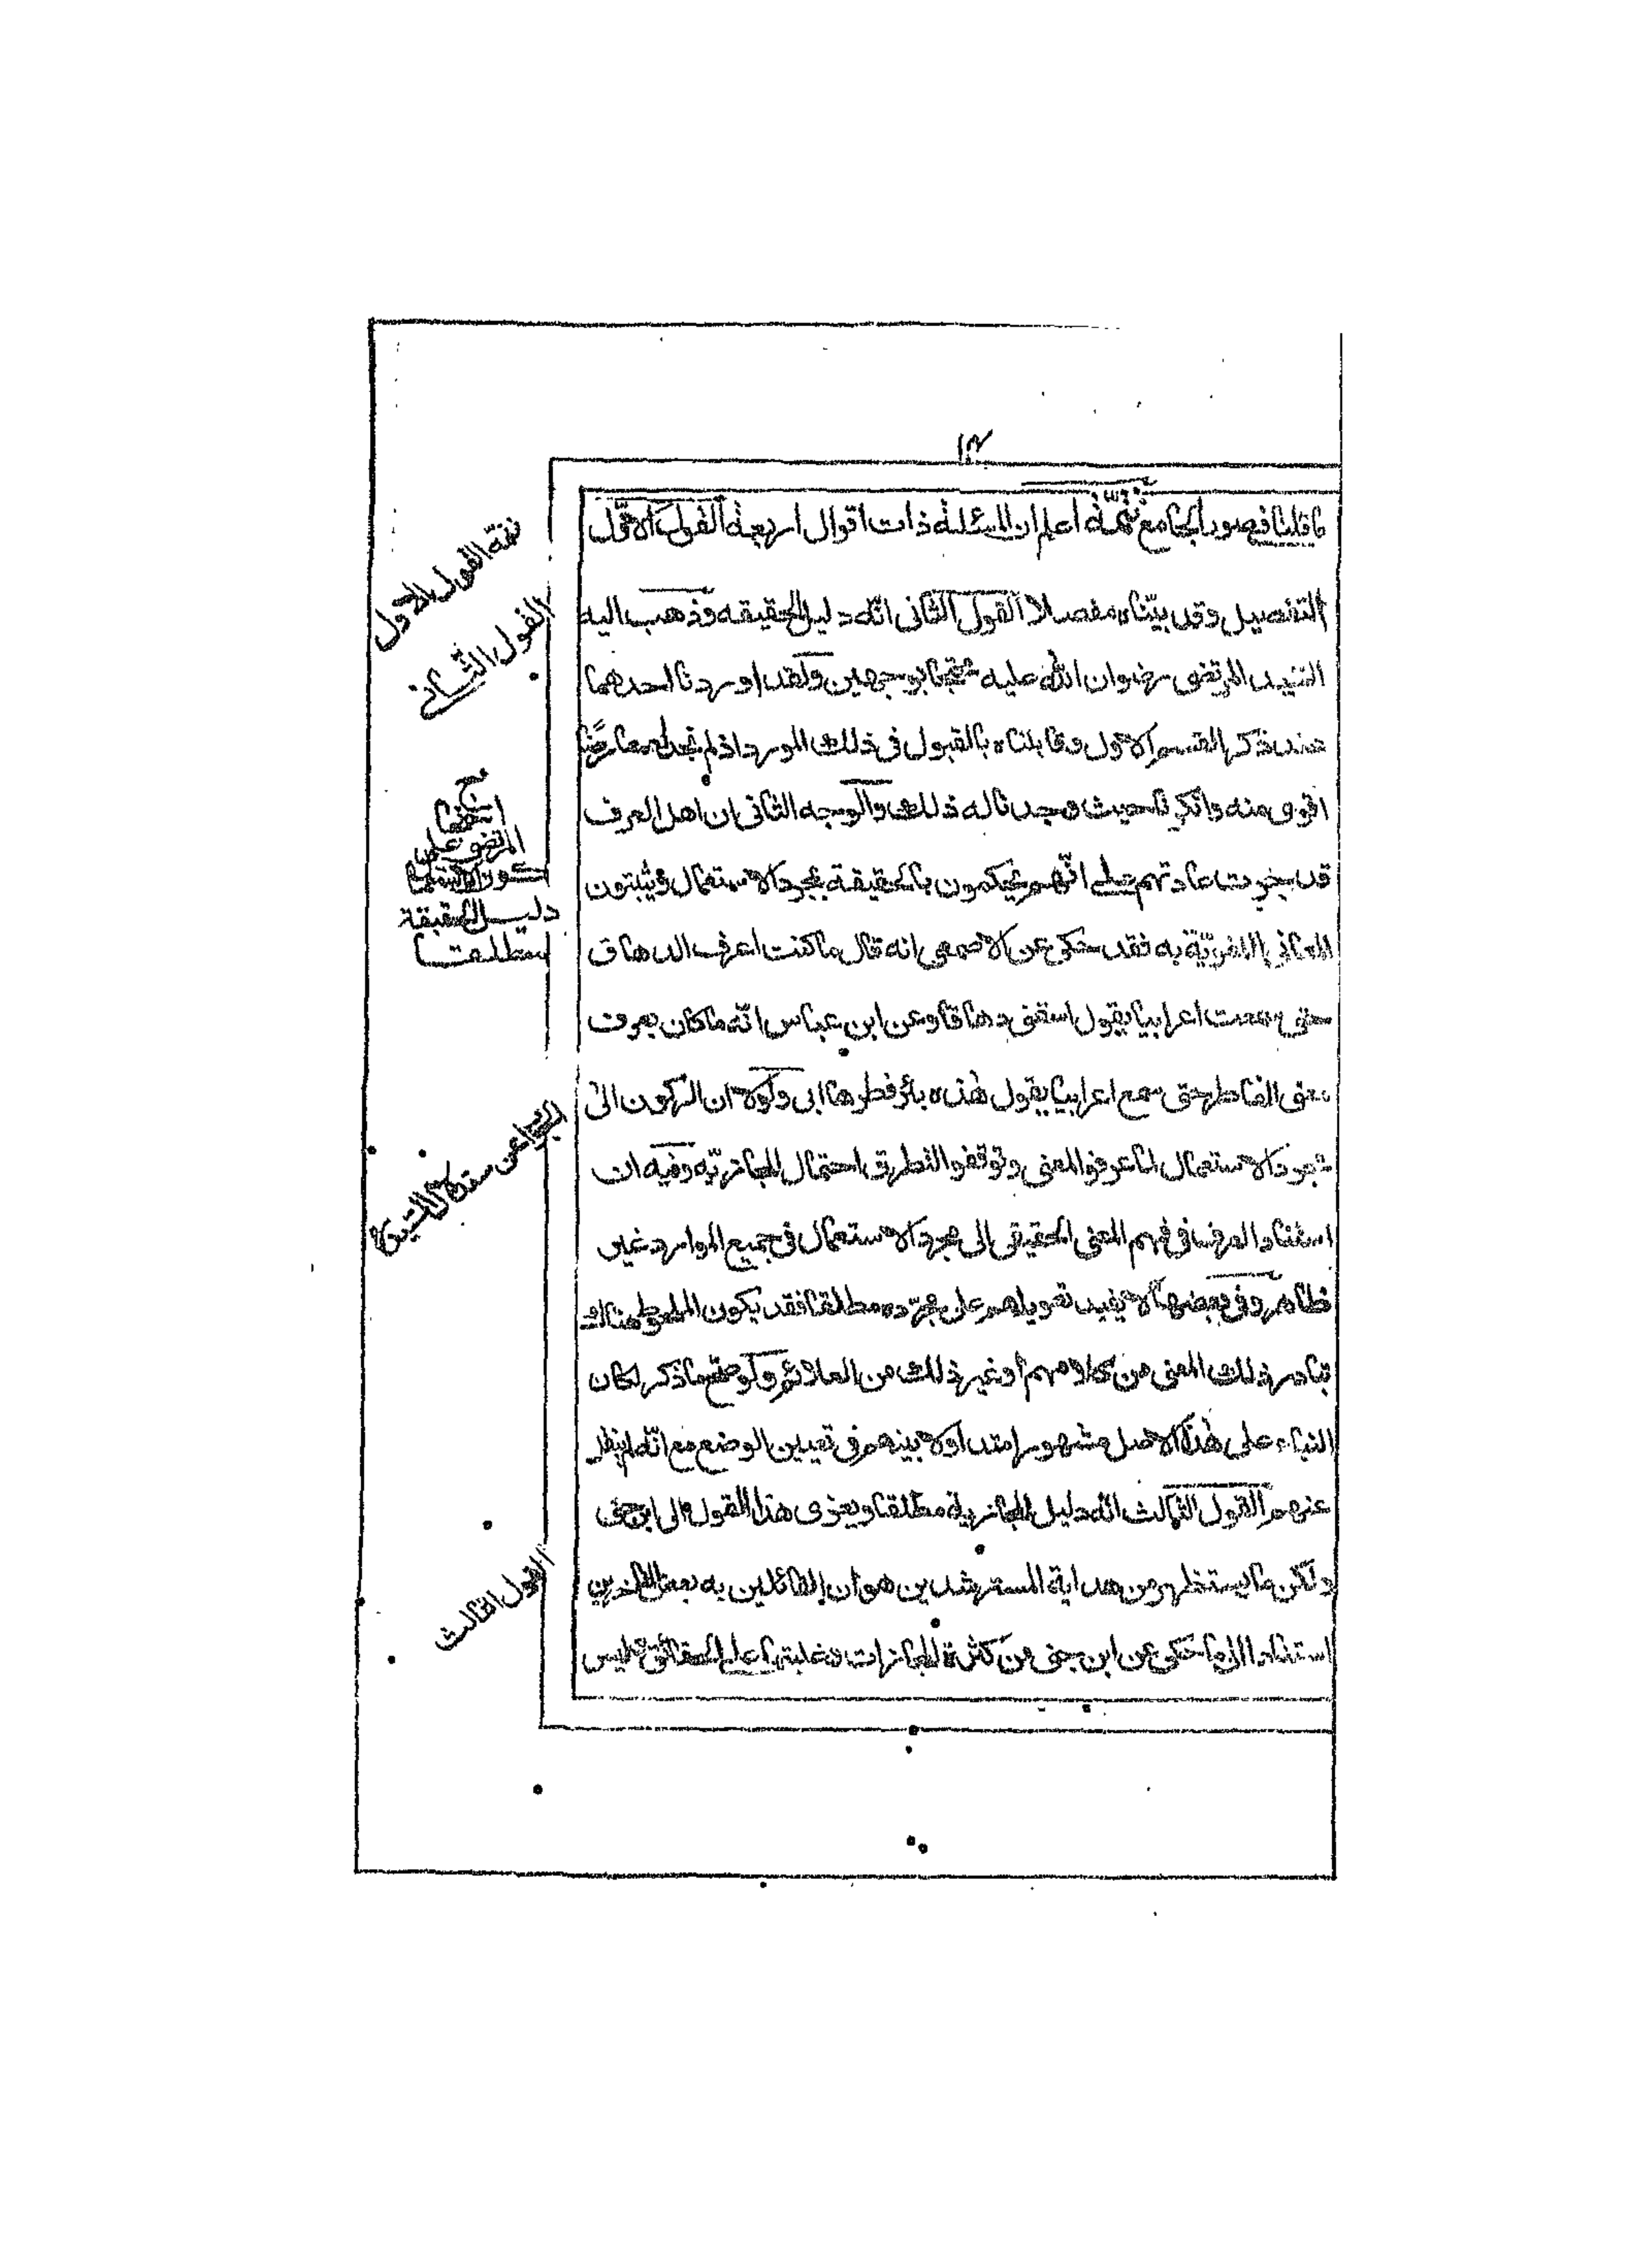 ١٣
ما قلنا فى صور الجامع تتمة اعلم ان المسئلة ذات اقوال اربعة القول الاول
التفصيل وقد بيّنّاه مفصلا القول الثانى انّه دليل الحقيقه وذهب اليه
السّيد المرتضى رضوان الله عليه محتجا بوجهين ولقد اوردنا احدهما
عند ذكر القسم الاول وقابلناه بالقبول فى ذلك المورد اذ لم نجد له معارضًا
اقوى منه وانكرنا حيث وجدنا له ذلك والوجه الثانى ان اهل العرف
قد جرت عادتهم على انّهم يحكمون بالحقيقة بمجرد الاستعمال ويثبتون
المعانى اللغويّة به فقد حكى عن الاصمعى انه قال ما كنت اعرف الدهاق
حتى سمعت اعرابيا يقول اسقنى دهاقا وعن ابن عباس انّه ما كان يعرف
معنى الفاطر حتى سمع اعرابيا يقول هذه بئر فطرها ابى ولولا ان الركون الى
مجرد الاستعمال لما عرفوا المعنى وتوقفوا لتطرق احتمال المجازيّه وفيه ان
استناد العرف فى فهم المعنى الحقيقى الى مجرد الاستعمال فى جميع الموارد غير
ظاهر وفى بعضها لا يفيد تعويلهم على مجرّده مطلقا فقد يكون الملحوظ هناك
تبادر ذلك المعنى من كلامهم او غير ذلك من العلائم ولو صحّ ما ذكر لكان
البناء على هذا الاصل مشهورا متداولا بينهم فى تعيين الوضع مع انّه لم ينقل
عنهم القول الثالث انّه دليل المجازية مطلقا ويعزى هذا القول الى ابن جنى
ولكن ما يستظهر من هداية المسترشدين هو ان القائلين به بعض المتاخرين
استنادا الى ما حكى عن ابن جنى من كثرة المجازات وغلبتها على الحقائق وليس
تتمة القول الاول
القول الثانى
المرتضى على
كون الاستعمال
دليل الحقيقة
مطلقا
القول الثالث